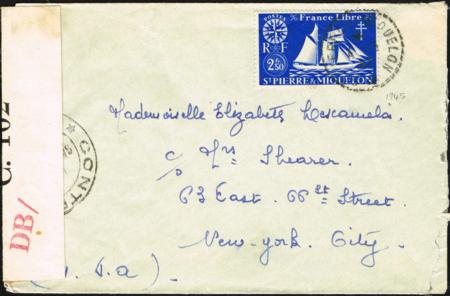 POSTES
France Libre
RF
2f50
ST PIERRE & MIQUELON
QUELON
1945
Mademoiselle Elizabeth
c/o Mrs Shearer
63 East. 66 st Street.
New-york. City.
(U.S.a).
C. 102
DB/
CONT